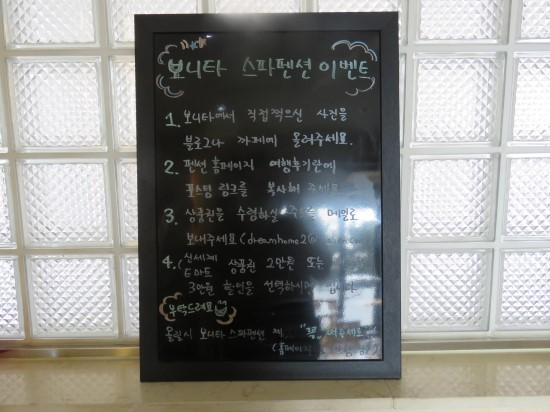 보니타 스파펜션 이벤트
1. 보니타에서 직접찍으신 사진을
블로그나 까페에 올려주세요.
2. 펜션 홈페이지 여행후기란에
포스팅 링크를 복사해 주세요
3. 상품권을 수령하실 메일로
보내주세요 (dreamhome2@
4. (신세계
E마트 상품권 2만원 또는
3만원 할인을 선택하시면 됩니다.
부탁드려요
올릴시 보니타 스파펜션
(홈페이지